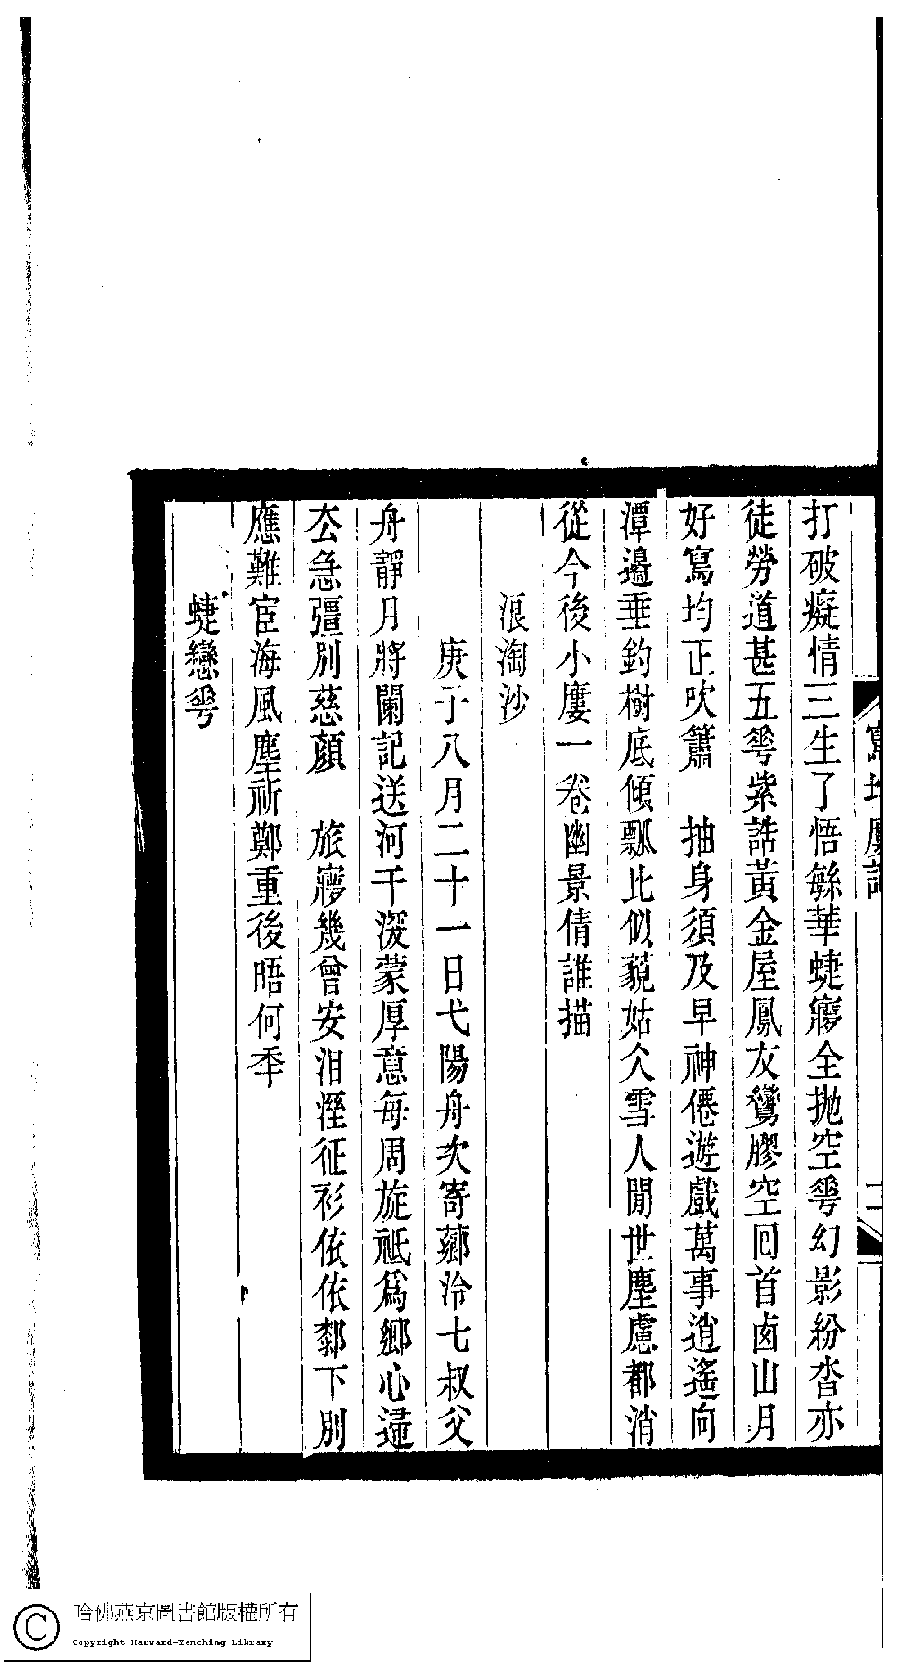 打破癡情三生了悟緐華蜨㝱全抛空𠌶幻影紛沓亦
徒勞道甚五𠌶紫誥黃金屋鳳友鸞膠空回首卥山月
好寫均正吹簫　抽身須及早神僊遊戲萬事逍遙向
潭邊垂釣樹底傾瓢比似藐姑仌雪人閒世塵慮都消
從今後小廔一卷幽景倩誰描
浪淘沙
庚子八月二十一日弋陽舟次寄薌泠七叔父
舟靜月將闌記送河干深蒙厚意每周旋祗爲鄉心歸
厺急彊別慈顏　旅㝱幾曾安泪溼征衫依依厀下別
應難宦海風塵祈鄭重後晤何秊
蜨戀𠌶
寫均廔詞
哈佛燕京圖書館版權所有
Copyright Harvard-Yenching Library